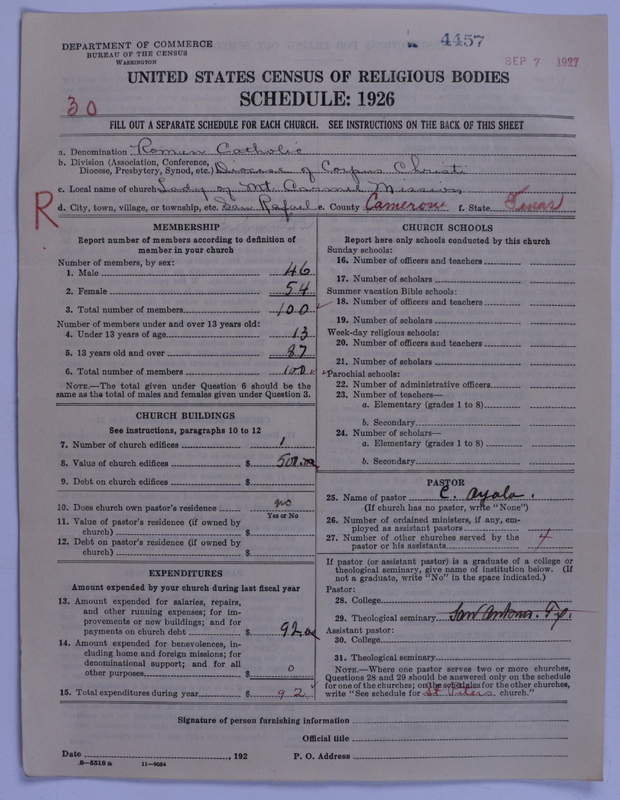 4457
DEPARTMENT OF COMMERCE
BUREAU OF THE CENSUS
WASHINGTON
SEP 7 1927
UNITED STATES CENSUS OF RELIGIOUS BODIES
SCHEDULE: 1926
30
FILL OUT A SEPARATE SCHEDULE FOR EACH CHURCH. SEE INSTRUCTIONS ON THE BACK OF THIS SHEET
a. Denomination Roman Catholic
b. Division (Association, Conference, Diocese, Presbytery, Synod, etc.) Diocese of Corpus Christi
c. Local name of church Lady of Mt. Carmel Mission
R
d. City, town, village, or township, etc. San Rafael e. County Cameron f. State Texas
MEMBERSHIP
Report number of members according to definition of
member in your church
Number of members, by sex:
1. Male 46
2. Female 54
3. Total number of members 100
Number of members under and over 13 years old:
4. Under 13 years of age 13
5. 13 years old and over 87
6. Total number of members 100
NOTE.—The total given under Question 6 should be the
same as the total of males and females given under Question 3.
CHURCH BUILDINGS
See instructions, paragraphs 10 to 12
7. Number of church edifices 1
8. Value of church edifices $ 500.00
9. Debt on church edifices $
10. Does church own pastor's residence no
Yes or No
11. Value of pastor's residence (if owned by
church) $
12. Debt on pastor's residence (if owned by
church) $
EXPENDITURES
Amount expended by your church during last fiscal year
13. Amount expended for salaries, repairs,
and other running expenses; for im-
provements or new buildings; and for
payments on church debt $ 92.00
14. Amount expended for benevolences, in-
cluding home and foreign missions; for
denominational support; and for all
other purposes $ 0
15. Total expenditures during year $ 92
CHURCH SCHOOLS
Report here only schools conducted by this church
Sunday schools:
16. Number of officers and teachers
17. Number of scholars
Summer vacation Bible schools:
18. Number of officers and teachers
19. Number of scholars
Week-day religious schools:
20. Number of officers and teachers
21. Number of scholars
Parochial schools:
22. Number of administrative officers
23. Number of teachers—
a. Elementary (grades 1 to 8)
b. Secondary
24. Number of scholars—
a. Elementary (grades 1 to 8)
b. Secondary
PASTOR
25. Name of pastor C. Ayala.
(If church has no pastor, write "None")
26. Number of ordained ministers, if any, em-
ployed as assistant pastors
27. Number of other churches served by the
pastor or his assistants 4
If pastor (or assistant pastor) is a graduate of a college or
theological seminary, give name of institution below. (If
not a graduate, write "No" in the space indicated.)
Pastor:
28. College
29. Theological seminary San Antonio.
Assistant pastor:
30. College
31. Theological seminary
NOTE.—Where one pastor serves two or more churches,
Questions 28 and 29 should be answered only on the schedule
for one of the churches; on the schedules for the other churches,
write "See schedule for St Peters church."
Signature of person furnishing information
Official title
Date , 192 P. O. Address
8-5518 a 11-9034